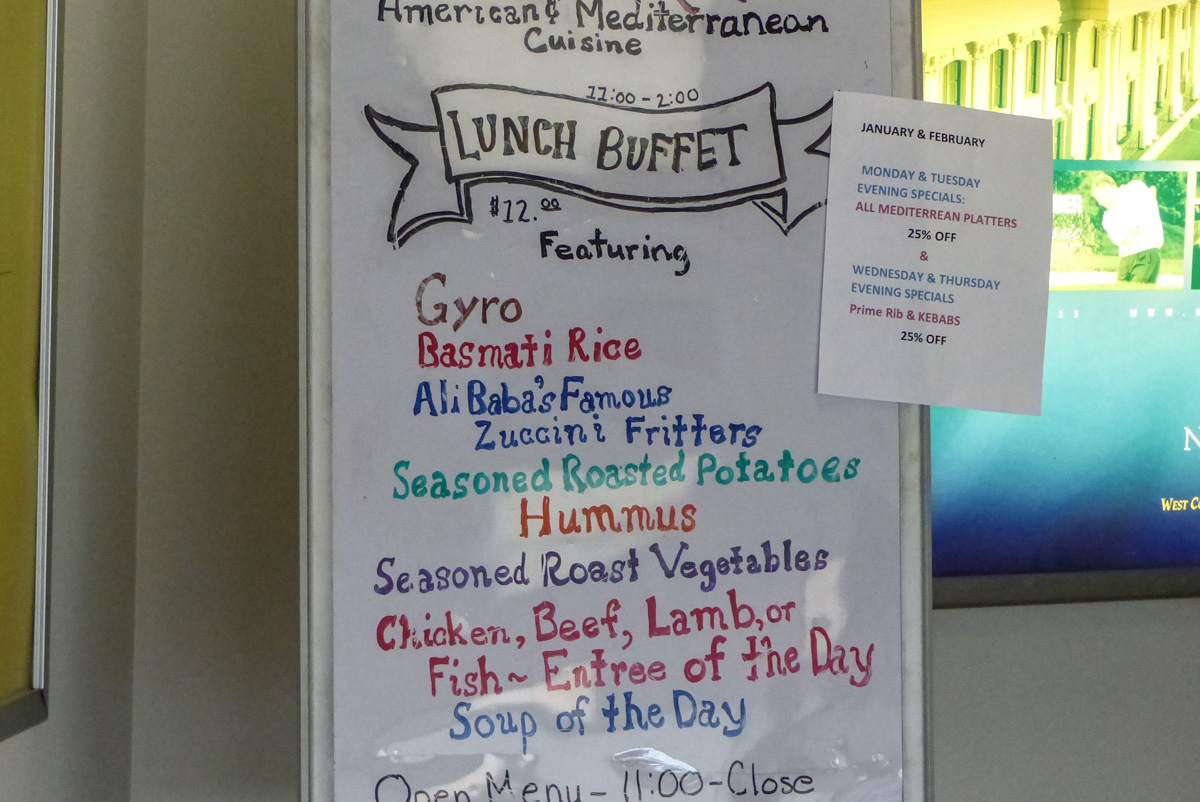 American & Mediterranean
Cuisine
11:00 - 2:00
LUNCH BUFFET
$12.00
Featuring
Gyro
Basmati Rice
Ali Baba's Famous
Zuccini Fritters
Seasoned Roasted Potatoes
Hummus
Seasoned Roast Vegetables
Chicken, Beef, Lamb, or
Fish ~ Entree of the Day
Soup of the Day
Open Menu - 11:00 - Close
JANUARY & FEBRUARY
MONDAY & TUESDAY
EVENING SPECIALS:
ALL MEDITERREAN PLATTERS
25% OFF
&
WEDNESDAY & THURSDAY
EVENING SPECIALS
Prime Rib & KEBABS
25% OFF
WEST